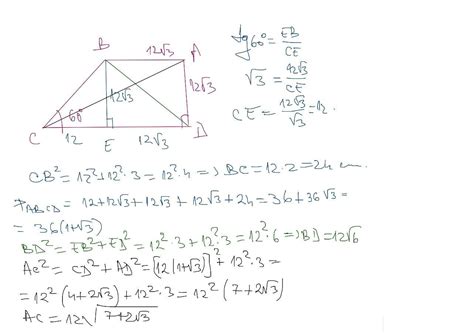 12√3
B
A
tg60° = EB/CE
12√3
12√3
√3 = 12√3/CE
60°
C
12
E
12√3
D
CE = 12√3/√3 = 12.
CB² = 12² + 12².3 = 12².4 => BC = 12.2 = 24 cm.
P_ABCD = 12 + 12√3 + 12√3 + 12√3 + 24 = 36 + 36√3 =
= 36(1+√3)
BD² = EB² + ED² = 12².3 + 12².3 = 12².6 => BD = 12√6
AC² = CD² + AD² = [12(1+√3)]² + 12².3 =
= 12²(4+2√3) + 12².3 = 12²(7+2√3)
AC = 12√(7+2√3)